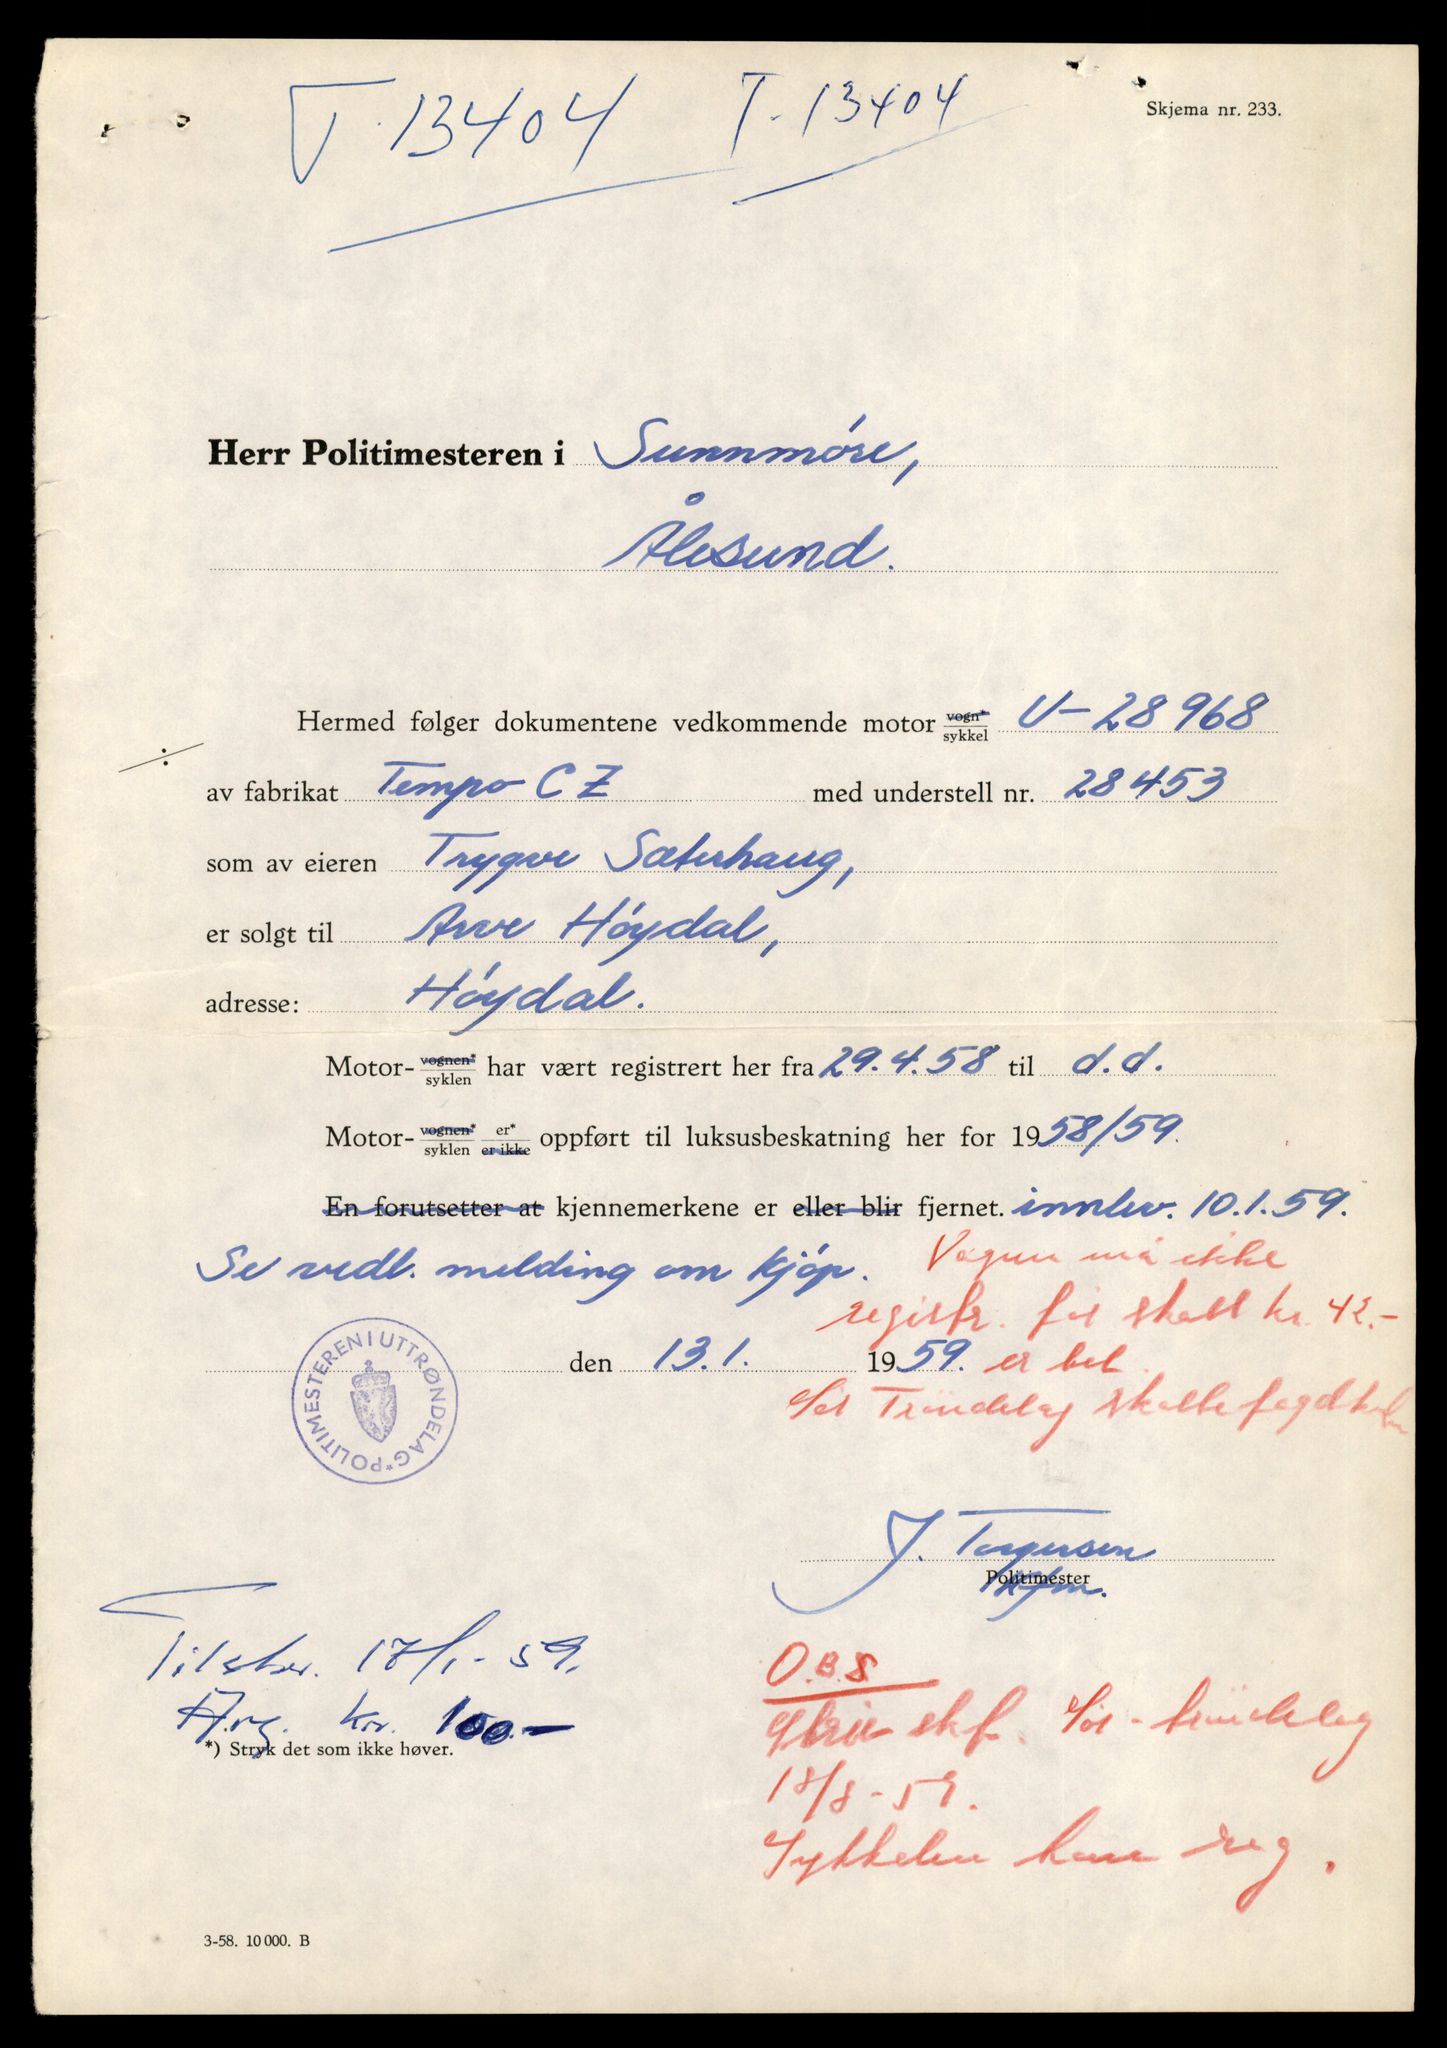 T-13404 T-13404
Skjema nr. 233.
Herr Politimesteren i Sunnmöre,
Ålesund.
Hermed følger dokumentene vedkommende motor vogn*/sykkel U-28968
av fabrikat Tempo CZ med understell nr. 28453
som av eieren Trygve Sæterhaug,
er solgt til Arve Höydal,
adresse: Höydal.
Motor- vognen*/syklen har vært registrert her fra 29.4.58 til d.d.
Motor- vognen*/syklen er*/er ikke oppført til luksusbeskatning her for 1958/59.
En forutsetter at kjennemerkene er eller blir fjernet. innlev. 10.1.59.
Se vedl. melding om kjöp. Vognen må ikke
registr. för skatt kr. 42.-
den 13.1. 1959. er bet.
Sör Tröndelag skattefogdktr
POLITIMESTEREN I UTTRØNDELAG *
J. Torgersen
Politimester
O.B.S
skf. Sör-Tröndelag
18/8-59.
Sykkelen kan reg.
Tilskr. 17/1-59.
Avg. kr. 100.-
*) Stryk det som ikke høver.
3-58. 10 000. B